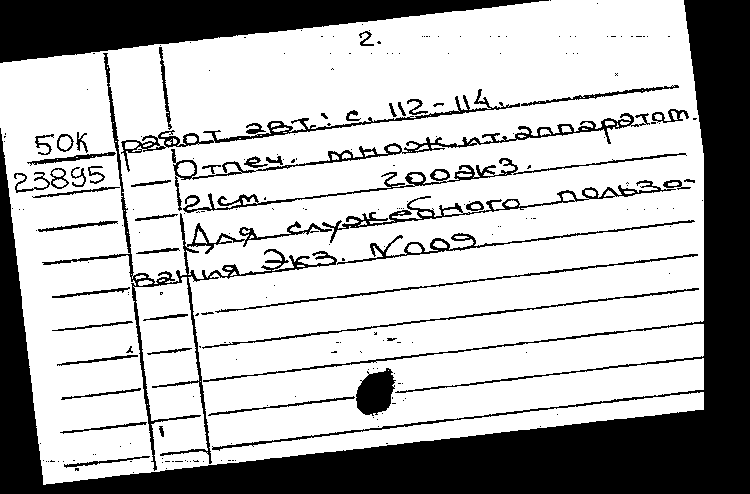 2.
50К
23895
работ авт.: с. 112-114.
Отпеч. множит. аппаратом.
21см. 200экз.
Для служебного пользо-
вания. Экз. N009